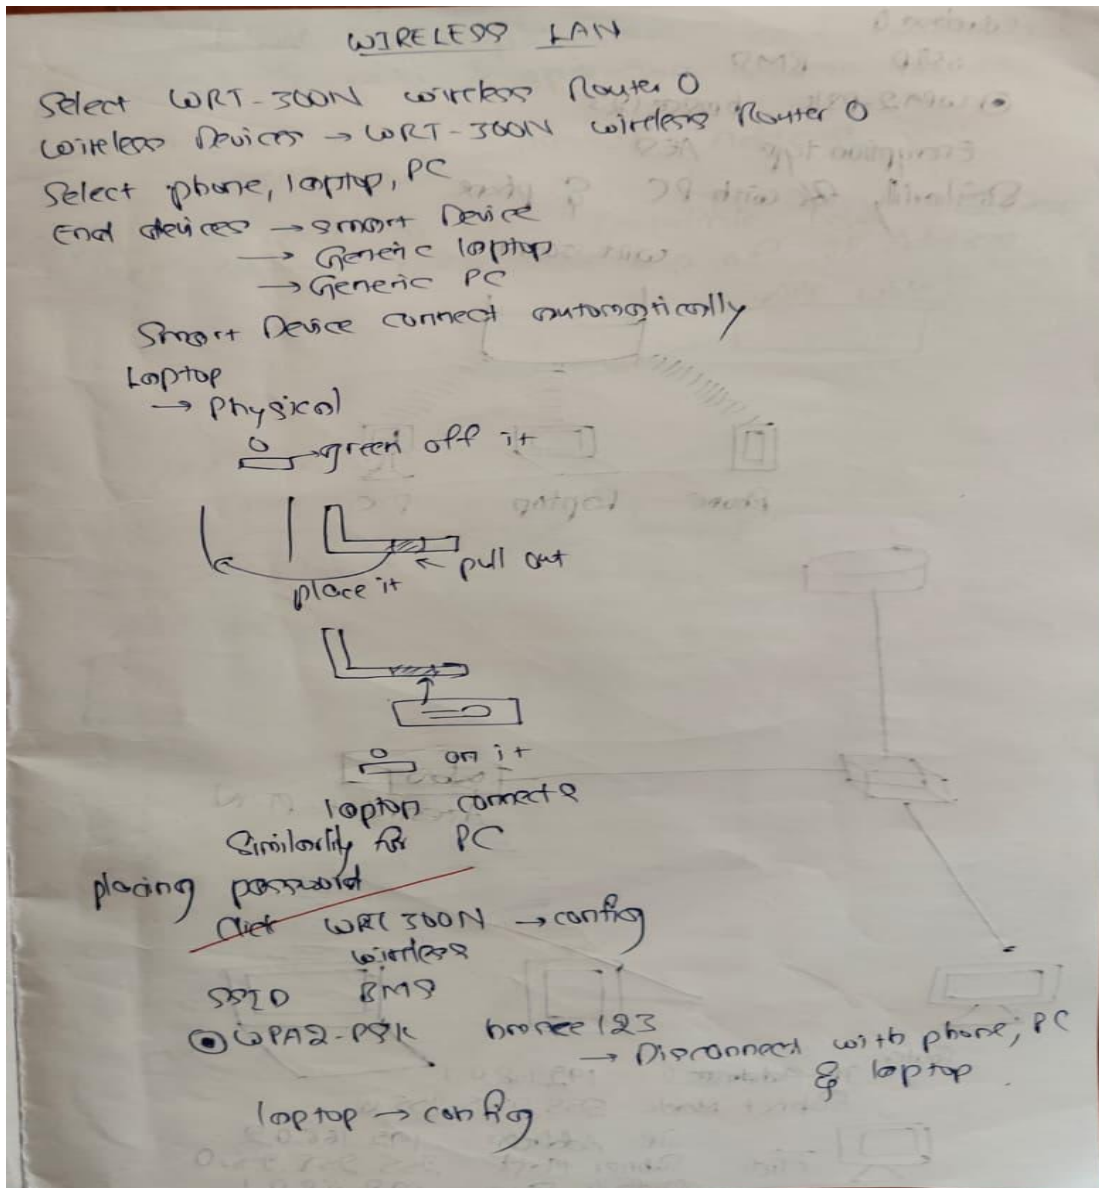 WIRELESS LAN
Select WRT-300N wireless Router 0
wireless Devices → WRT-300N wireless Router 0
Select phone, laptop, PC
End devices → smart Device
→ Generic laptop
→ Generic PC
Smart Device connect automatically
Laptop
→ Physical
green off it
pull out
place it
on it
laptop connects
Similarly for PC
placing password
Click WRT 300N → config
wireless
SSID BMS
WPA2-PSK
→ Disconnect with phone, PC
& laptop
laptop → config